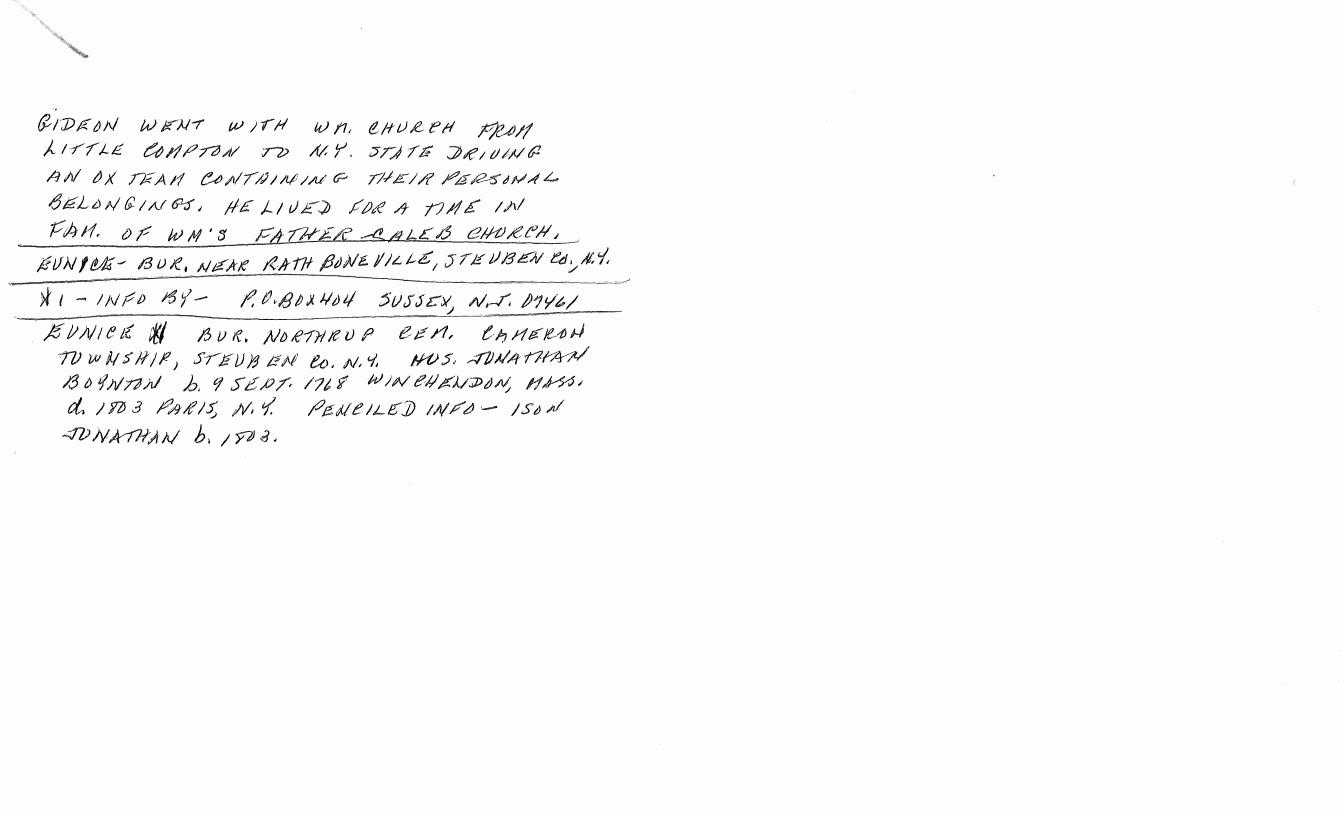 GIDEON WENT WITH WM. CHURCH FROM
LITTLE COMPTON TO N.Y. STATE DRIVING
AN OX TEAM CONTAINING THEIR PERSONAL
BELONGINGS. HE LIVED FOR A TIME IN
FAM. OF WM'S FATHER CALEB CHURCH.
EUNICE - BUR. NEAR RATH BONEVILLE, STEUBEN CO., N.Y.
X1 - INFO BY - P.O. BOX 404 SUSSEX, N.J. 07461
EUNICE BUR. NORTHRUP CEM. CAMERON
TOWNSHIP, STEUBEN CO. N.Y. HUS. JONATHAN
BOYNTON b. 9 SEPT. 1768 WINCHENDON, MASS.
d. 1803 PARIS, N.Y. PENCILED INFO - 1 SON
JONATHAN b. 1803.